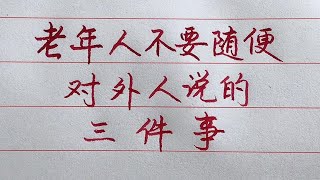 老年人不要随便
对外人说的
三件事